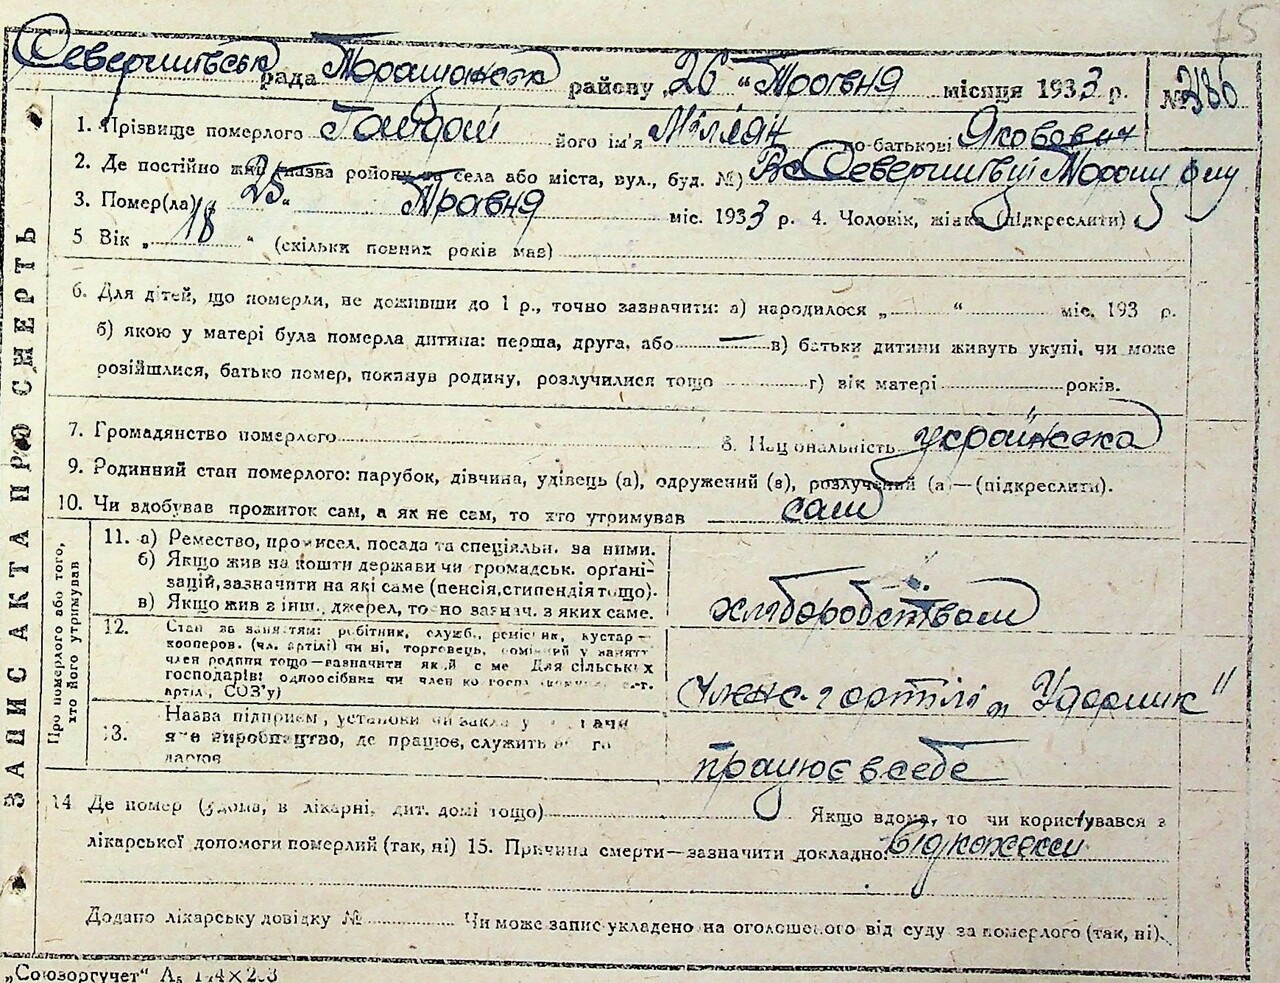 75
Северинівська рада Таращанська району „26“ Травня місяця 1933 р. №
1. Прізвище померлого Гайдай його ім'я по-батькові Якович
2. Де постійно жив (назва району та села або міста, вул., буд. №) Северинівці
3. Помер(ла) 25 “ Травня міс. 1933 р. 4. Чоловік, жінка (підкреслити)
5 Вік „ 18 “ (скільки повних років мав)
6. Для дітей, що померли, не доживши до 1 р., точно зазначити: а) народилося „ “ міс. 193 р.
б) якою у матері була померла дитина: перша, друга, або — в) батьки дитини живуть укупі, чи може
розійшлися, батько помер, покинув родину, розлучилися тощо г) вік матері років.
7. Громадянство померлого 8. Національність українська
9. Родинний стан померлого: парубок, дівчина, удівець (а), одружений (а), розлучений (а)—(підкреслити).
10. Чи здобував прожиток сам, а як не сам, то хто утримував сам
ЗАПИС АКТА ПРО СМЕРТЬ
Про померлого або того, хто його утримував
11. а) Ремество, промисел, посада та спеціяльн. за ними.
б) Якщо жив на кошти держави чи громадськ. орґані-
зацій, зазначити на які саме (пенсія, стипендія тощо).
в) Якщо жив з інш. джерел, точно зазнач. з яких саме.
хліборобством
12. Стан за заняттям: робітник, служб., ремісник, кустар—
кооперов. (чл. артілі) чи ні, торговець,
член родини тощо—зазначити який саме Для сільських
господарів: одноосібник чи член
артілі, СОЗ'у)
член артілі „Ударник"
13. Назва підприєм, установи чи
яке виробництво, де працює, служить
працює в себе
14 Де помер (удома, в лікарні, дит. домі тощо) Якщо вдома, то чи користувався з
лікарської допомоги померлий (так, ні) 15. Причина смерти—зазначити докладно:
Додано лікарську довідку № Чи може запис укладено на оголошеного від суду за померлого (так, ні).
„Союзоргучет“